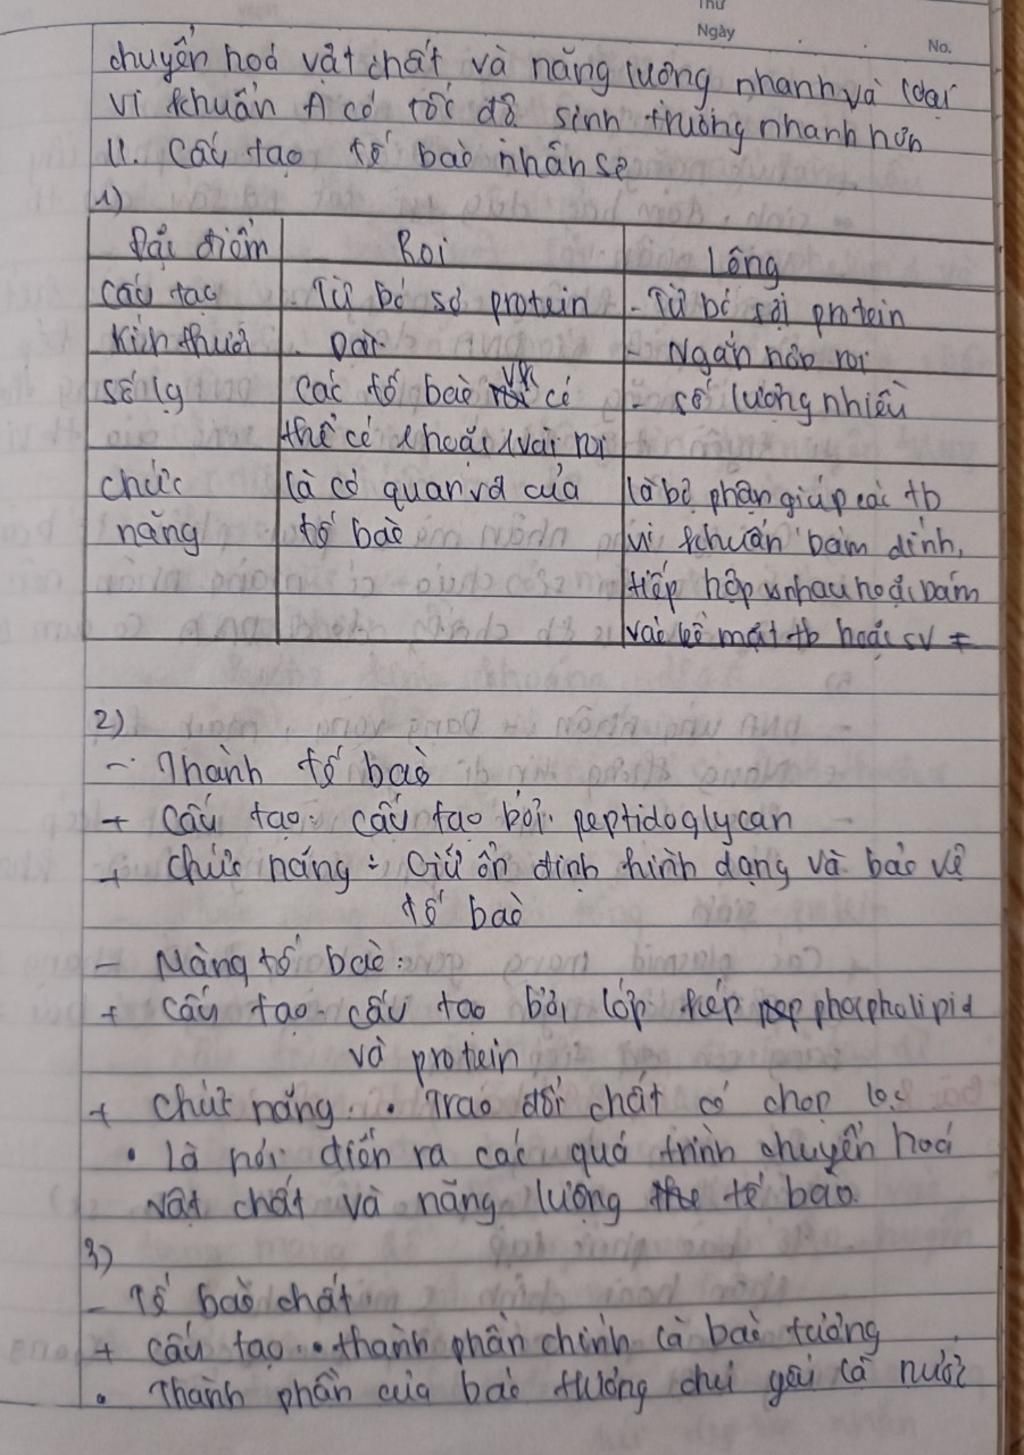 Thứ
Ngày
No.
chuyển hoá vật chất và năng lượng nhanh và loại
vi khuẩn A có tốc độ sinh trưởng nhanh hơn
II. Cấu tạo tế bào nhân sơ
1)
Đặc điểm Roi Lông
Cấu tạo - Từ bó sợi protein - Từ bó sợi protein
Kích thước - Dài - Ngắn hơn roi
số lg Các tế bào VK có - số lượng nhiều
thể có 1 hoặc 1 vài roi
chức là cơ quan vđ của là bộ phận giúp các tb
năng tế bào vi khuẩn bám dính,
tiếp hợp vs nhau hoặc bám
vào bề mặt tb hoặc sv ≠
2)
- Thành tế bào
+ Cấu tạo: cấu tạo bởi peptidoglycan
+ chức năng: Giữ ổn định hình dạng và bảo vệ
tế bào
- Màng tế bào:
+ Cấu tạo: cấu tạo bởi lớp kép phospholipid
và protein
+ Chức năng: • Trao đổi chất có chọn lọc
• là nơi diễn ra các quá trình chuyển hoá
vật chất và năng lượng tế bào.
3)
- Tế bào chất
+ cấu tạo: • thành phần chính là bào tương
• Thành phần của bào tương chủ yếu là nước